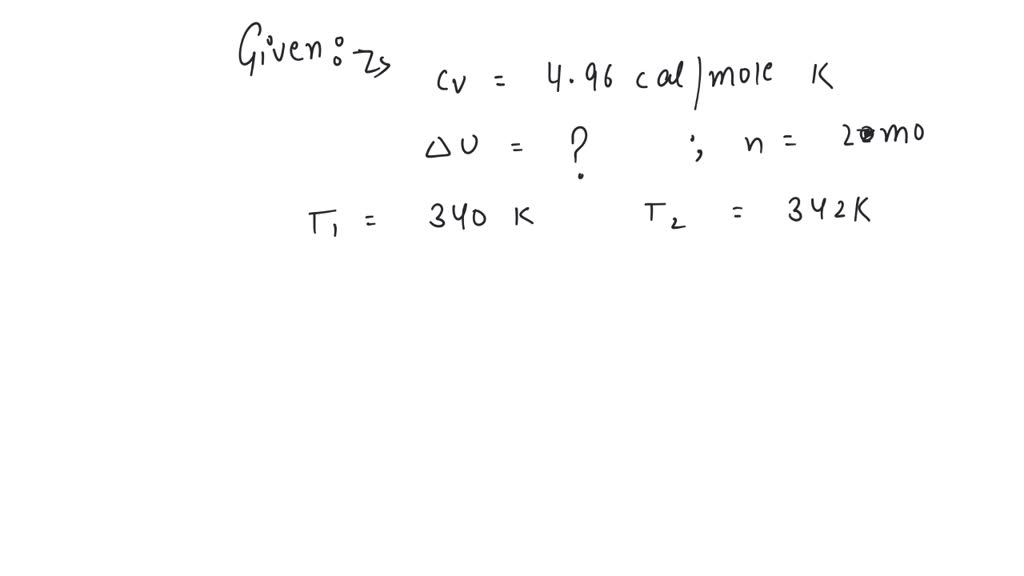 Given:
Cv = 4.96 cal/mole K
ΔU = ? ; n = 2 mo
T1 = 340 K T2 = 342K